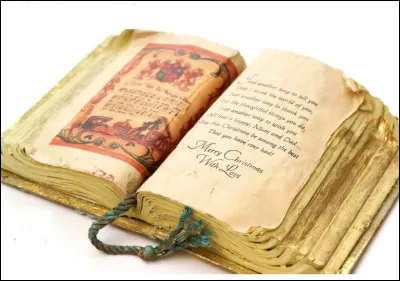 Just another way to tell you
That I think the world of you,
Just another way to thank you
For the thoughtful things you do,
Just another way to wish you
All that's inside, Mum and Dad...
May this Christmas be among the best
That you have ever had!
Merry Christmas
With Love